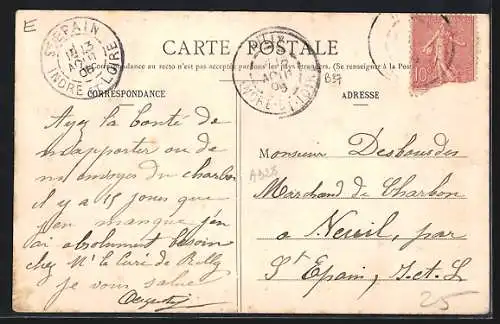 E
ST EPAIN
13
AOUT
06
INDRE-ET-LOIRE
AOUT
06
INDRE-ET-LOIRE
10
CARTE POSTALE
La Correspondance au recto n'est pas acceptée par tous les pays étrangers. (Se renseigner à la Poste)
CORRESPONDANCE
ADRESSE
Ayez la bonté de
m'apporter ou de
m'envoyer du charbon
il y a 15 jours que
j'en manque j'en
ai absolument besoin
chez Mr le Curé de Rilly
je vous salue
Monsieur Desbourdes
Marchand de Charbon
a Neuil, par
St Epain, I. et. L
25